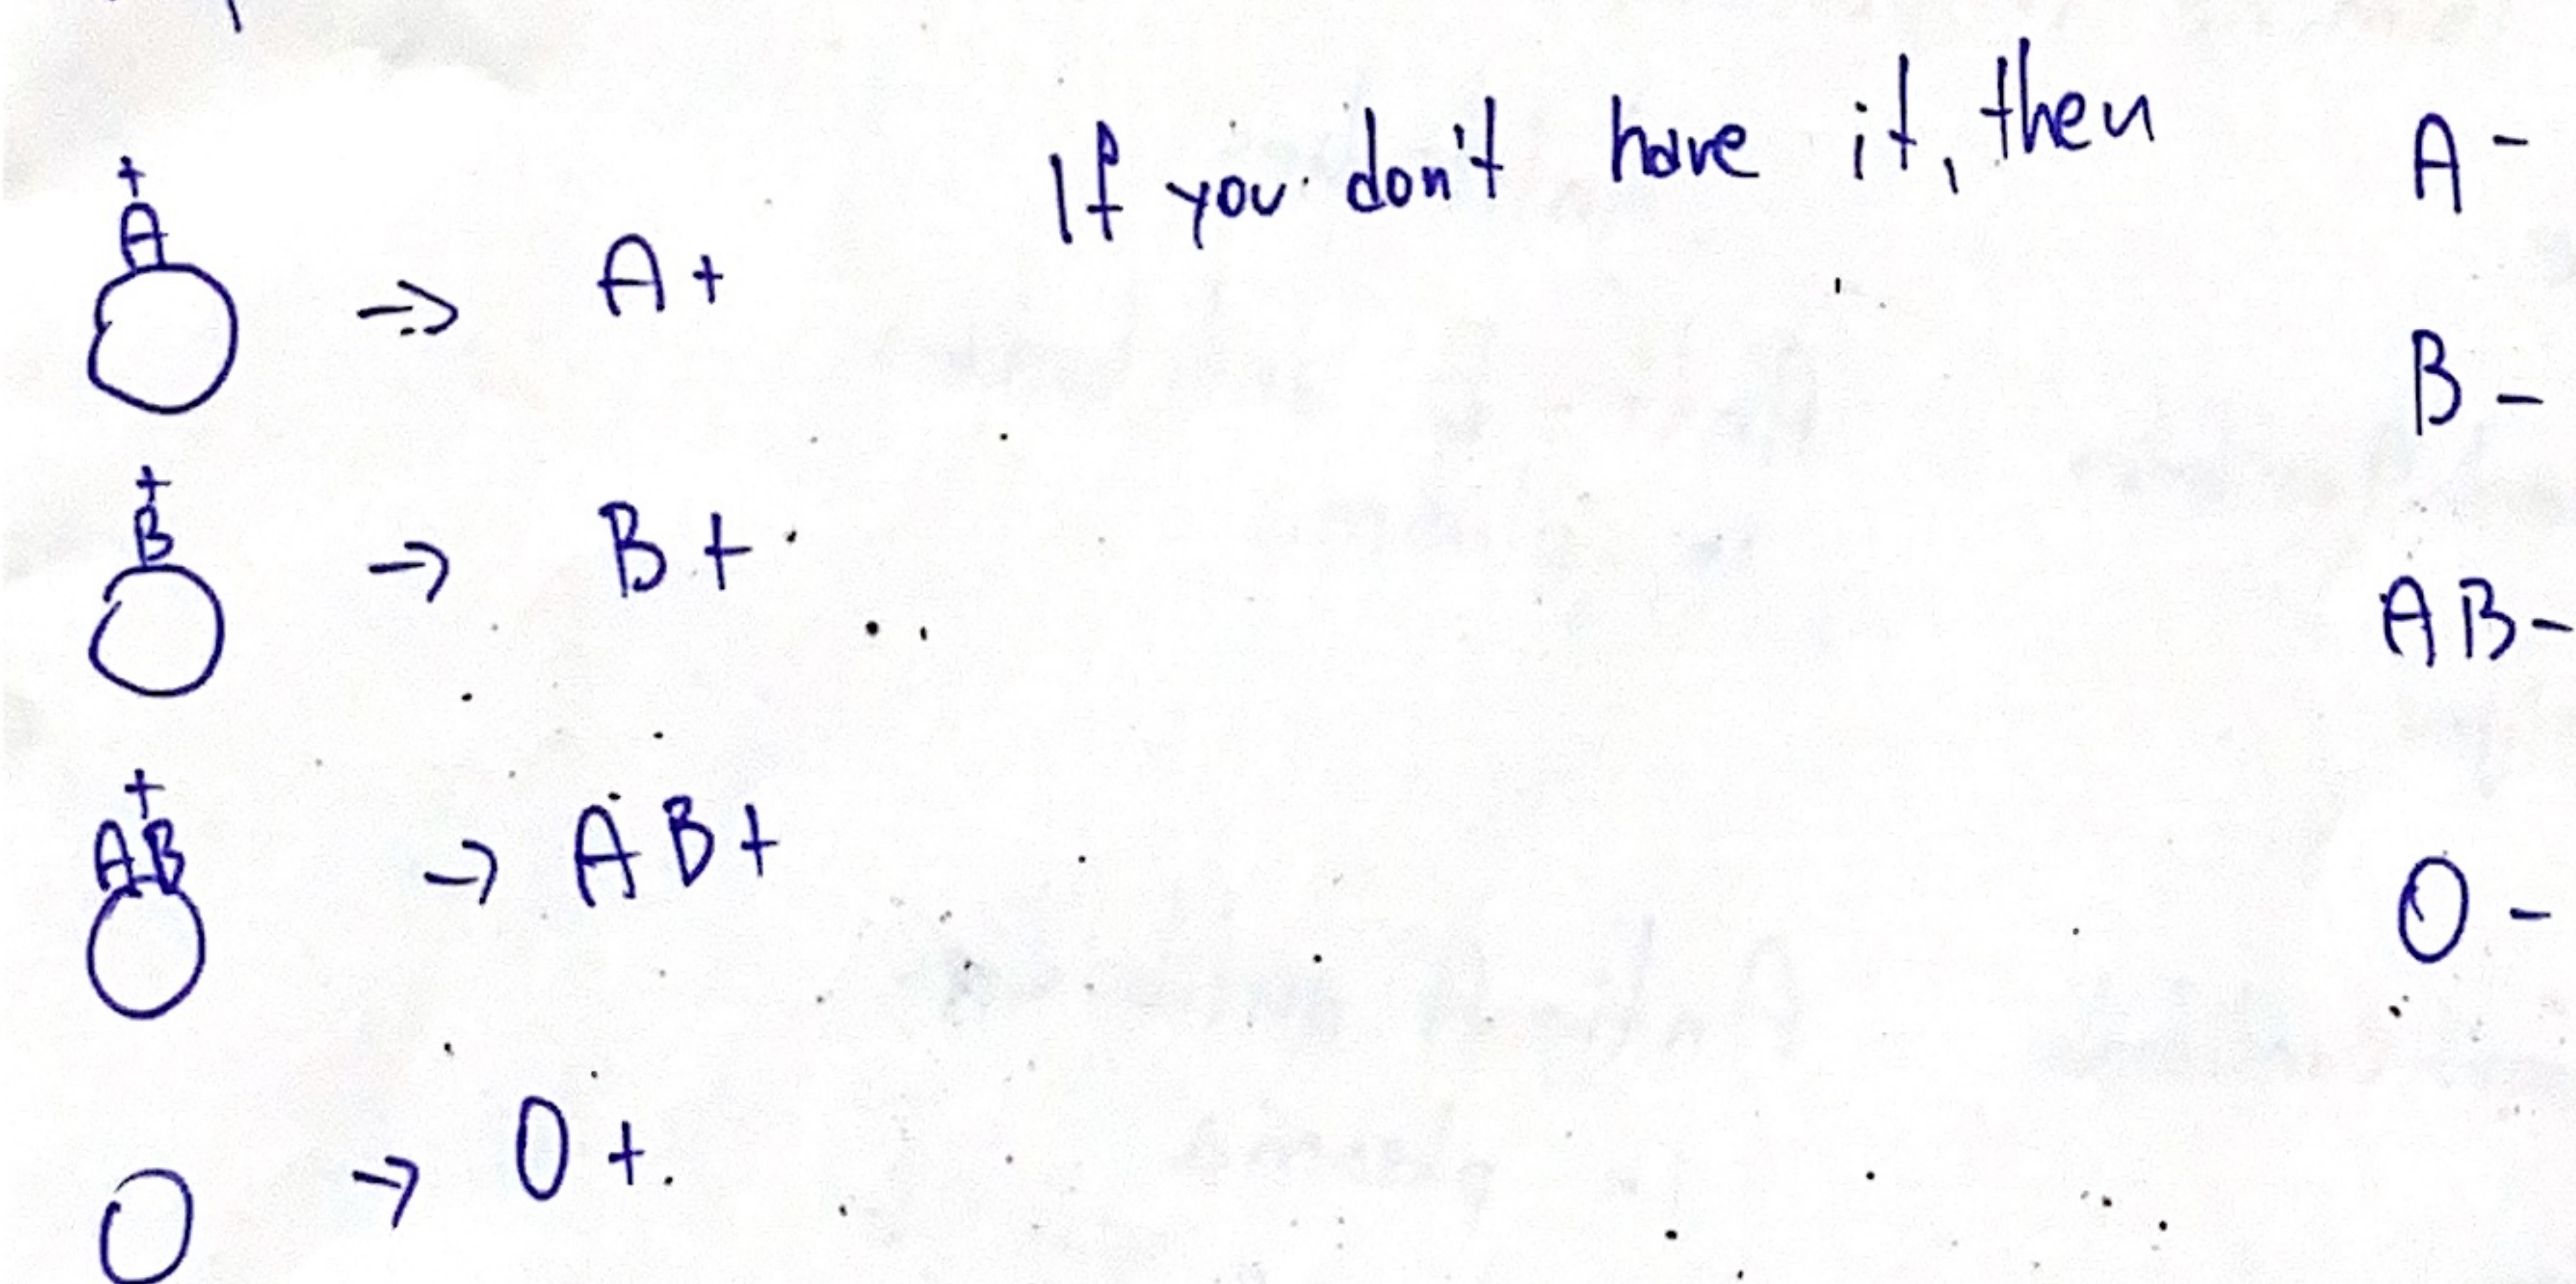 If you don't have it, then A -
+
A
→ A +
B -
+
B
→ B +
AB -
+
AB
→ AB +
O -
O → O +